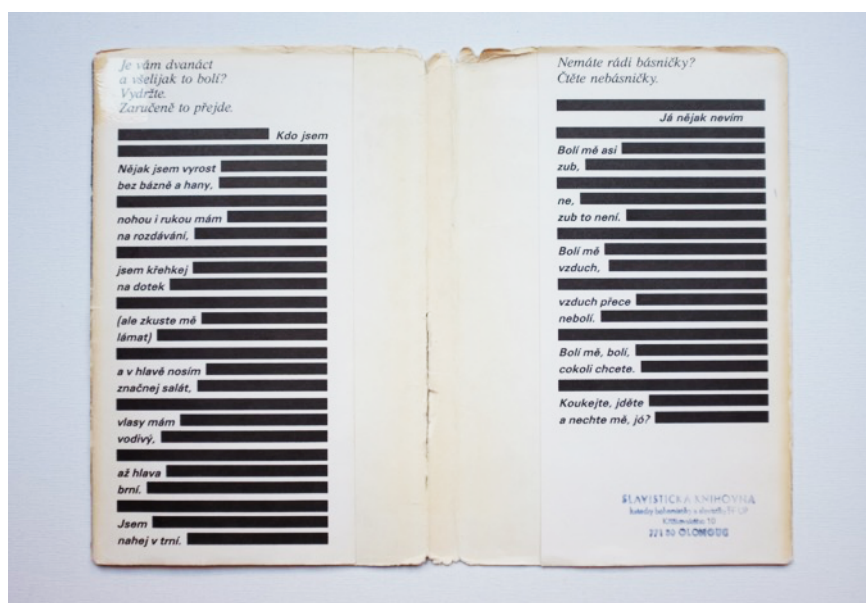 Je vám dvanáct
a všelijak to bolí?
Vydržte.
Zaručeně to přejde.
Kdo jsem
Nějak jsem vyrost
bez bázně a hany,
nohou i rukou mám
na rozdávání,
jsem křehkej
na dotek
(ale zkuste mě
lámat)
a v hlavě nosím
značnej salát,
vlasy mám
vodivý,
až hlava
brní.
Jsem
nahej v trní.
Nemáte rádi básničky?
Čtěte nebásničky.
Já nějak nevím
Bolí mě asi
zub,
ne,
zub to není.
Bolí mě
vzduch,
vzduch přece
nebolí.
Bolí mě, bolí,
cokoli chcete.
Koukejte, jděte
a nechte mě, jó?
SLAVISTICKÁ KNIHOVNA
10
OLOMOUC